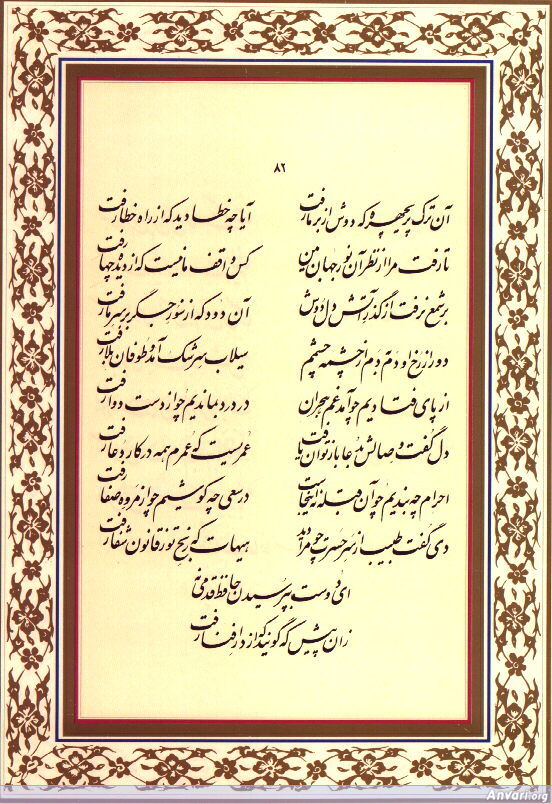 ۸۲
آن ترک پریچهره که دوش از بر ما رفت آیا چه خطا دید که از راه خطا رفت
تا رفت مرا از نظر آن نور جهان بین کس واقف ما نیست که از دیده چها رفت
بر شمع نرفت از گذر آتش دل دوش آن دود که از سوز جگر بر سر ما رفت
دور از رخ او دم بدم از چشمه چشمم سیلاب سرشک آمد و طوفان بلا رفت
از پای فتادیم چو آمد غم هجران در درد بماندیم چو از دست دوا رفت
دل گفت وصالش به دعا باز توان یافت عمریست که عمرم همه در کار دعا رفت
احرام چه بندیم چو آن قبله نه اینجاست در سعی چه کوشیم چو از مروه صفا رفت
دی گفت طبیب از سر حسرت چو مرا دید هیهات که رنج تو ز قانون شفا رفت
ای دوست بپرسیدن حافظ قدمی نه
زان پیش که گویند که از دار فنا رفت
Anvari.org